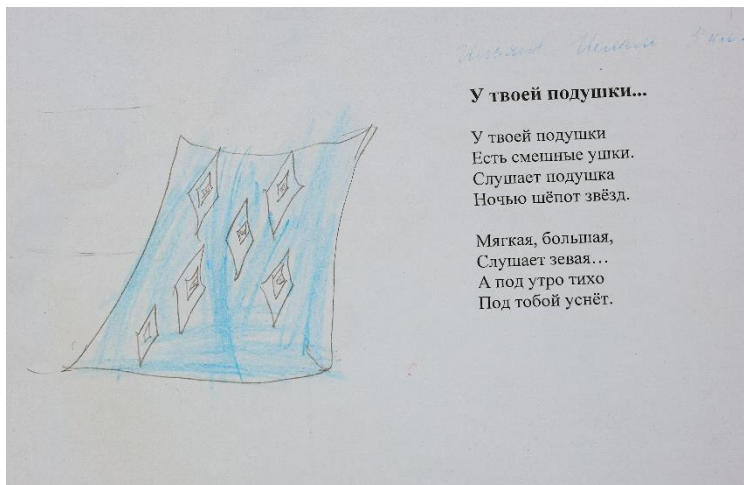 5 кл.
У твоей подушки...
У твоей подушки
Есть смешные ушки.
Слушает подушка
Ночью шёпот звёзд.
Мягкая, большая,
Слушает зевая…
А под утро тихо
Под тобой уснёт.